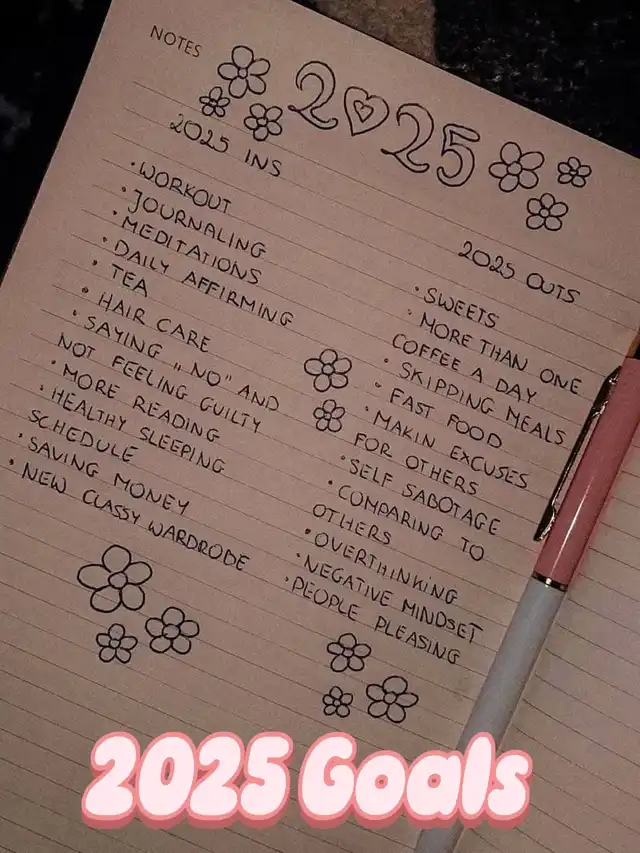 NOTES
2025
2025 INS
• WORKOUT
• JOURNALING
• MEDITATIONS
• DAILY AFFIRMING
• TEA
• HAIR CARE
• SAYING „NO" AND
NOT FEELING GUILTY
• MORE READING
• HEALTHY SLEEPING
SCHEDULE
• SAVING MONEY
• NEW CLASSY WARDROBE
2025 OUTS
• SWEETS
• MORE THAN ONE
COFFEE A DAY
• SKIPPING MEALS
• FAST FOOD
• MAKIN EXCUSES
FOR OTHERS
• SELF SABOTAGE
• COMPARING TO
OTHERS
• OVERTHINKING
• NEGATIVE MINDSET
• PEOPLE PLEASING
2025 Goals